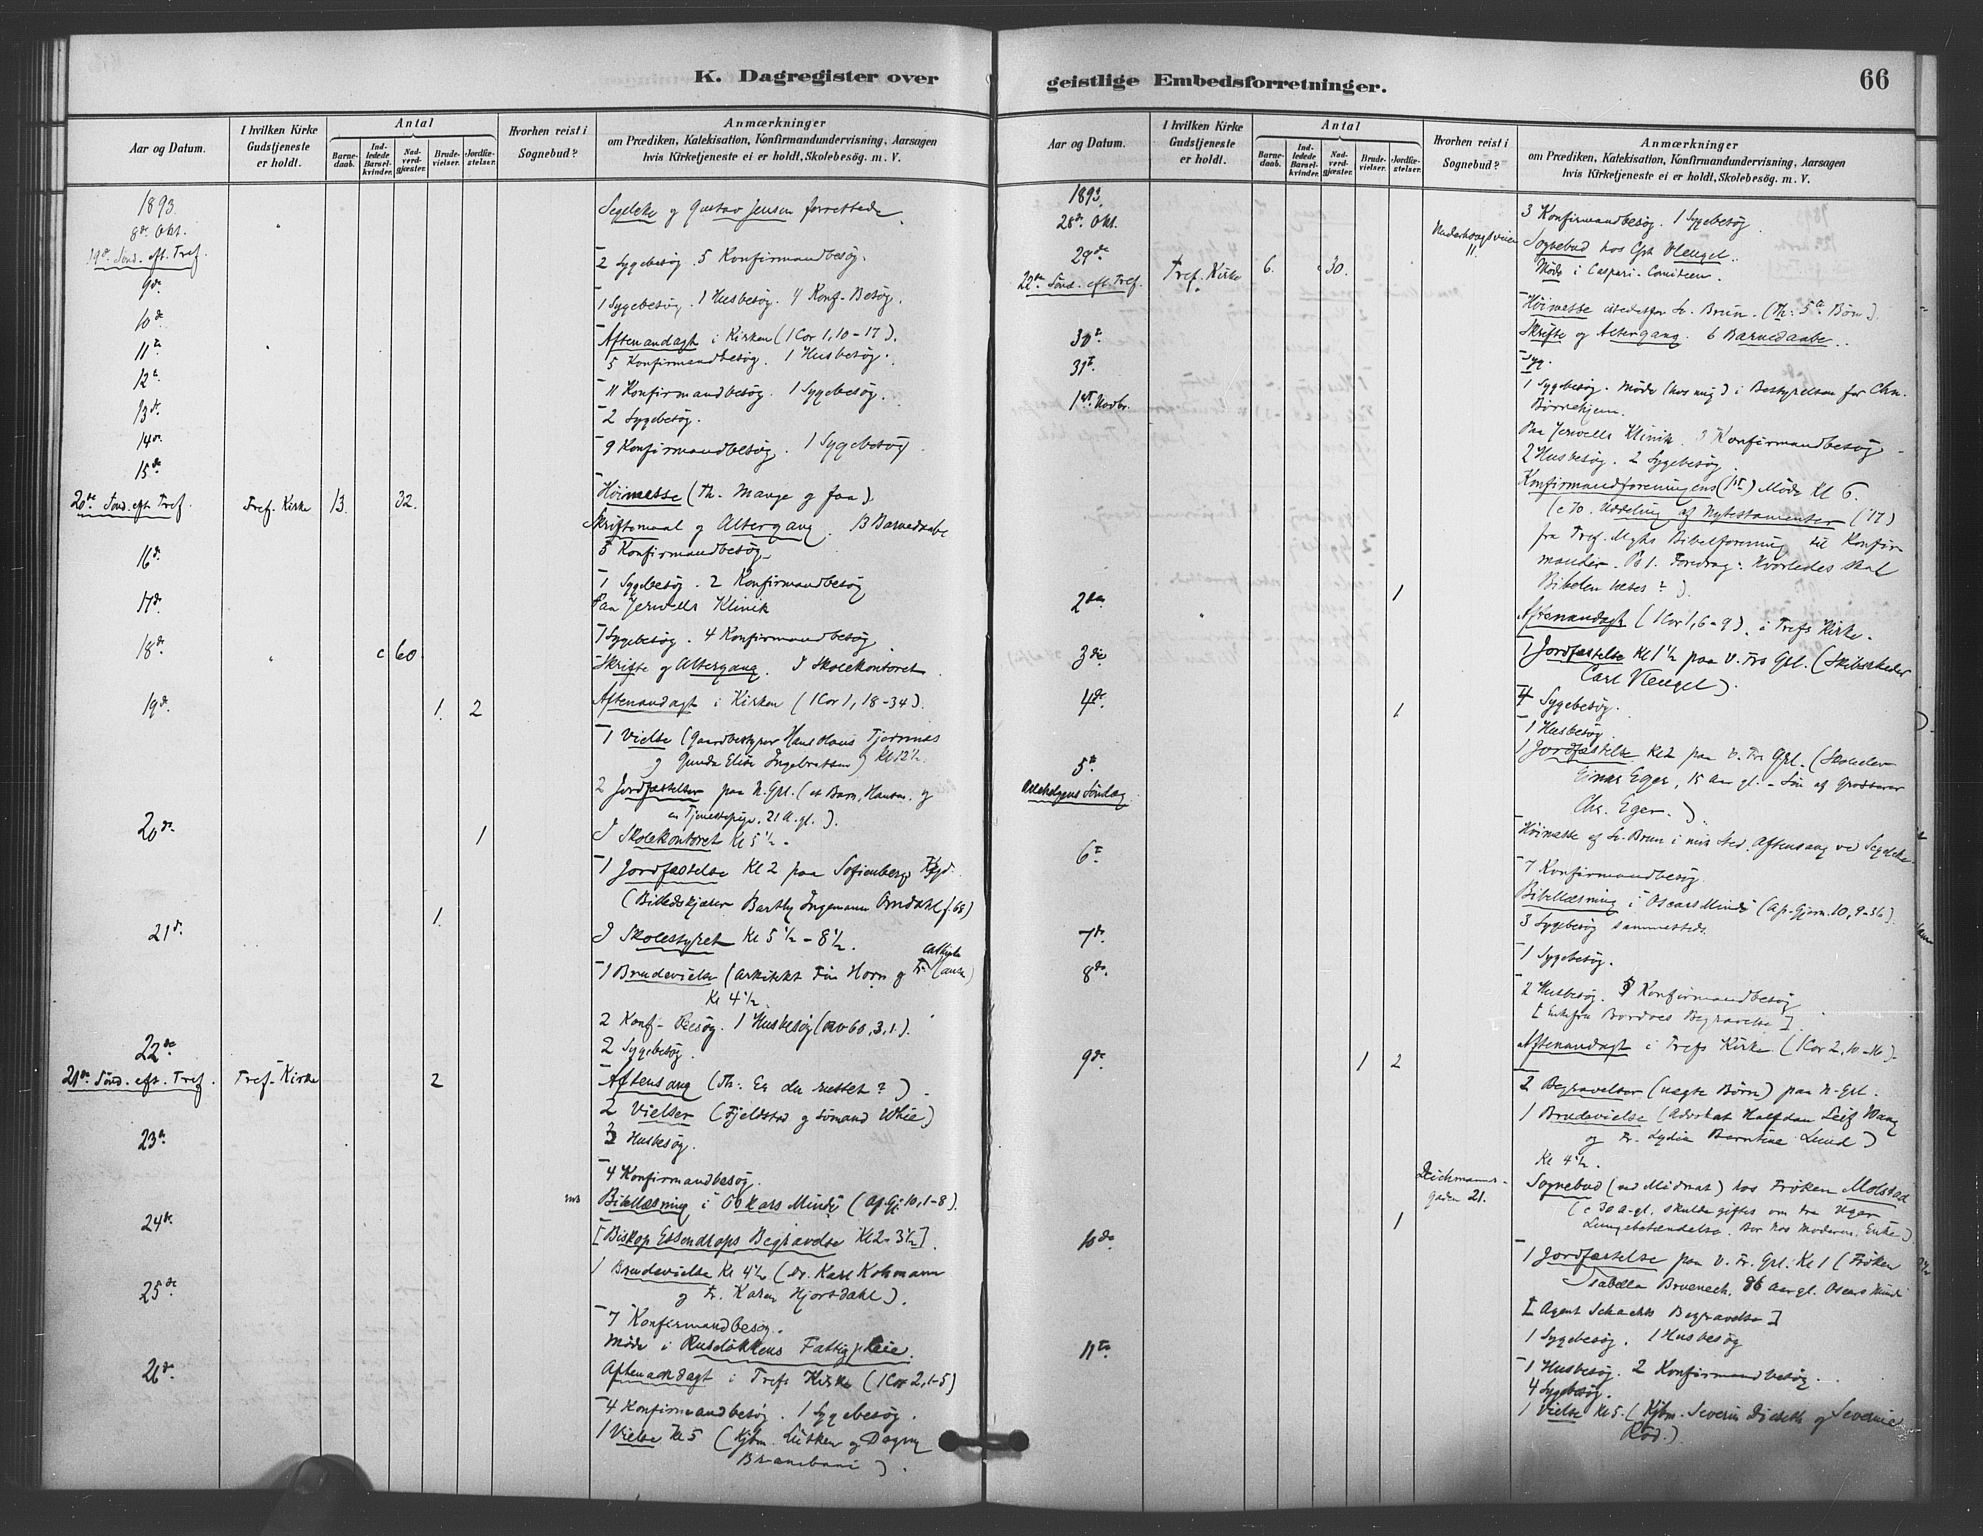 K. Dagregister over
Aar og Datum.
I hvilken Kirke Gudstjeneste er holdt.
Antal
Barnedaab.
Indledede Barselkvinder.
Nadverdgjæster.
Brudevielser.
Jordfæstelser.
Hvorhen reist i Sognebud?
Anmærkninger
om Prædiken, Katekisation, Konfirmandundervisning, Aarsagen
hvis Kirketjeneste ei er holdt, Skolebesøg. m. V.
1893.
8de Okt.
Segelcke og Gustav Jensen forrettede.
19de Sønd. eft. Tref.
2 Sygebesøg. 5 Konfirmandbesøg.
9de
1 Sygebesøg. 1 Husbesøg. 4 Konf-Besøg.
10de
Aftenandagt i Kirken (1 Cor 1, 10-17).
11te
5 Konfirmandbesøg. 1 Husbesøg.
12te
11 Konfirmandbesøg. 1 Sygebesøg.
13de
2 Sygebesøg.
14de
9 Konfirmandbesøg. 1 Sygebesøg
15de
Høimesse (Th. Mange og faa).
20de Sønd. eft Tref. Tref. Kirke 13. 32.
Skriftemaal og Altergang. 13 Barnedaabe
5 Konfirmandbesøg.
16de
1 Sygebesøg. 2 Konfirmandbesøg
Paa Jervells Klinik
17de
1 Sygebesøg. 4 Konfirmandbesøg
18de c 60
Skrifte og Altergang. I Skolekontoret.
Aftenandagt i Kirken (1 Cor 1, 18-34).
19de 1. 2
1 Vielse (Gaardbestyrer Hans Hans Tjernnæs
og Gunda Elise Ingebretsen) Kl 12½.
2 Jordfæstelser paa N. Grl. (et Barn, Hansen, og
en Tjenestepige, 21 A. gl.).
I Skolekontoret Kl 5½.
20de 1
1 Jordfæstelse Kl 2 paa Sofienberg Kgd.
(Billedskjærer Barthy Ingemann Omdahl f. 68)
21de 1.
I Skolestyret Kl 5½-8½.
1 Brudevielse (Arkitekt Fin Horn og Fr.
Kl 4½.
2 Konf-Besøg. 1 Husbesøg
2 Sygebesøg.
22de
21de Sønd. eft. Tref. Tref. Kirke 2
Aftensang (Th: Er du rustet?).
2 Vielser (Fjeldstad og Sømand Whie)
23de
3 Husbesøg.
4 Konfirmandbesøg.
Bibellæsning i Oskars Minde (Ap. Gj. 10, 1-8).
24de
[Biskop Essendrops Begravelse Kl 2-3½].
1 Brudevielse Kl 4½ (Dr. Karl Kohmann
og Fr. Karen Hjorsdahl).
25de
7 Konfirmandbesøg.
Møde i Ruseløkkens Fattigpleie.
Aftenandagt i Trefs Kirke (1 Cor 2, 1-5)
26de
4 Konfirmandbesøg. 1 Sygebesøg.
1 Vielse Kl 5 (Kjbm. Lütken og Dagny
).
geistlige Embedsforretninger.
66
Aar og Datum.
I hvilken Kirke Gudstjeneste er holdt.
Antal
Barnedaab.
Indledede Barselkvinder.
Nadverdgjæster.
Brudevielser.
Jordfæstelser.
Hvorhen reist i Sognebud?
Anmærkninger
om Prædiken, Katekisation, Konfirmandundervisning, Aarsagen
hvis Kirketjeneste ei er holdt, Skolebesøg. m. V.
1893.
28de Okt.
3 Konfirmandbesøg. 1 Sygebesøg.
Underhaugsveien 11.
Sognebud hos Cpt Klengel.
Møde i Caspari-Comiteen.
29de
22de Sønd. eft. Tref. Tref. Kirke 6. c 30.
Høimesse istedetfor Hr. Brun. (Th: 5te Bøn).
Skrifte og Altergang. 6 Barnedaabe.
30te
Syg.
31te
1 Sygebesøg. Møde (hos mig) i Bestyrelsen for Chr.
Børnehjem.
1ste Novbr.
Paa Jervells Klinik. 3 Konfirmandbesøg.
2 Husbesøg. 2 Sygebesøg
Konfirmandforeningens (1ste) Møde Kl 6.
(c 70. Uddeling af Nytestamenter (17)
fra Tref. Mghs Bibelforening til Konfir-
mander. Ps 1. Foredrag: Hvorledes skal
Bibelen læses?)
2den 1
Aftenandagt (1 Cor 1, 6-9). i Trefs Kirke.
3de
1 Jordfæstelse Kl 1½ paa V. Frs Grl. (Skibsrheder
Carl Klengel).
4de 1
4 Sygebesøg.
1 Husbesøg.
1 Jordfæstelse Kl 2 paa V. Frs Grl. (Skoleelev
Einar Eger, 15 Aar gl. - Søn af Grosserer
Chr. Eger.)
5te
Allehelgens Søndag
Høimesse af Hr. Brun i mit Sted. Aftensang ved Segelcke.
6te
7 Konfirmandbesøg.
Bibellæsning i Oscars Minde (Ap-Gjern. 10, 9-36).
3 Sygebesøg sammesteds.
7de
1 Sygebesøg.
8de
2 Husbesøg. 5 Konfirmandbesøg
[Enkefru Bordoes Begravelse]
Aftenandagt i Trefs Kirke (1 Cor 2, 10-16).
9de 1 2
2 Begravelser (uægte Børn) paa N-Grl.
1 Brudevielse (Advokat Halfdan Leif Waag
og Fr. Lydia Berntine Lund)
Kl 4½.
Deichmans-
gaden 21.
Sognebud (ved Midnat) hos Frøken Molstad
(c 30 A-gl. skulde giftes om tre Uger
Lungebetændelse. Bor hos Moderen, Enke)
10de 1
1 Jordfæstelse paa V. Fr. Grl. Kl 1 (Frøken
Isabella Bruenech, 86 Aar gl. Oscars Minde
[Agent Schacks Begravelse]
1 Sygebesøg. 1 Husbesøg
11te
1 Husbesøg. 2 Konfirmandbesøg.
4 Sygebesøg.
1 Vielse Kl 5. (Kjbm. Severin Dideth og Severine
Rød.)